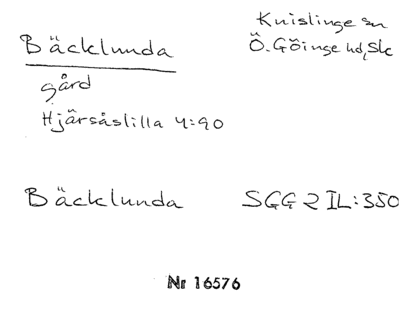 Knislinge sn
Bäcklunda
Ö. Göinge hd, Sk
gård
Hjärsåslilla 4:90
Bäcklunda
SGG 2 IL:350
Nr 16576